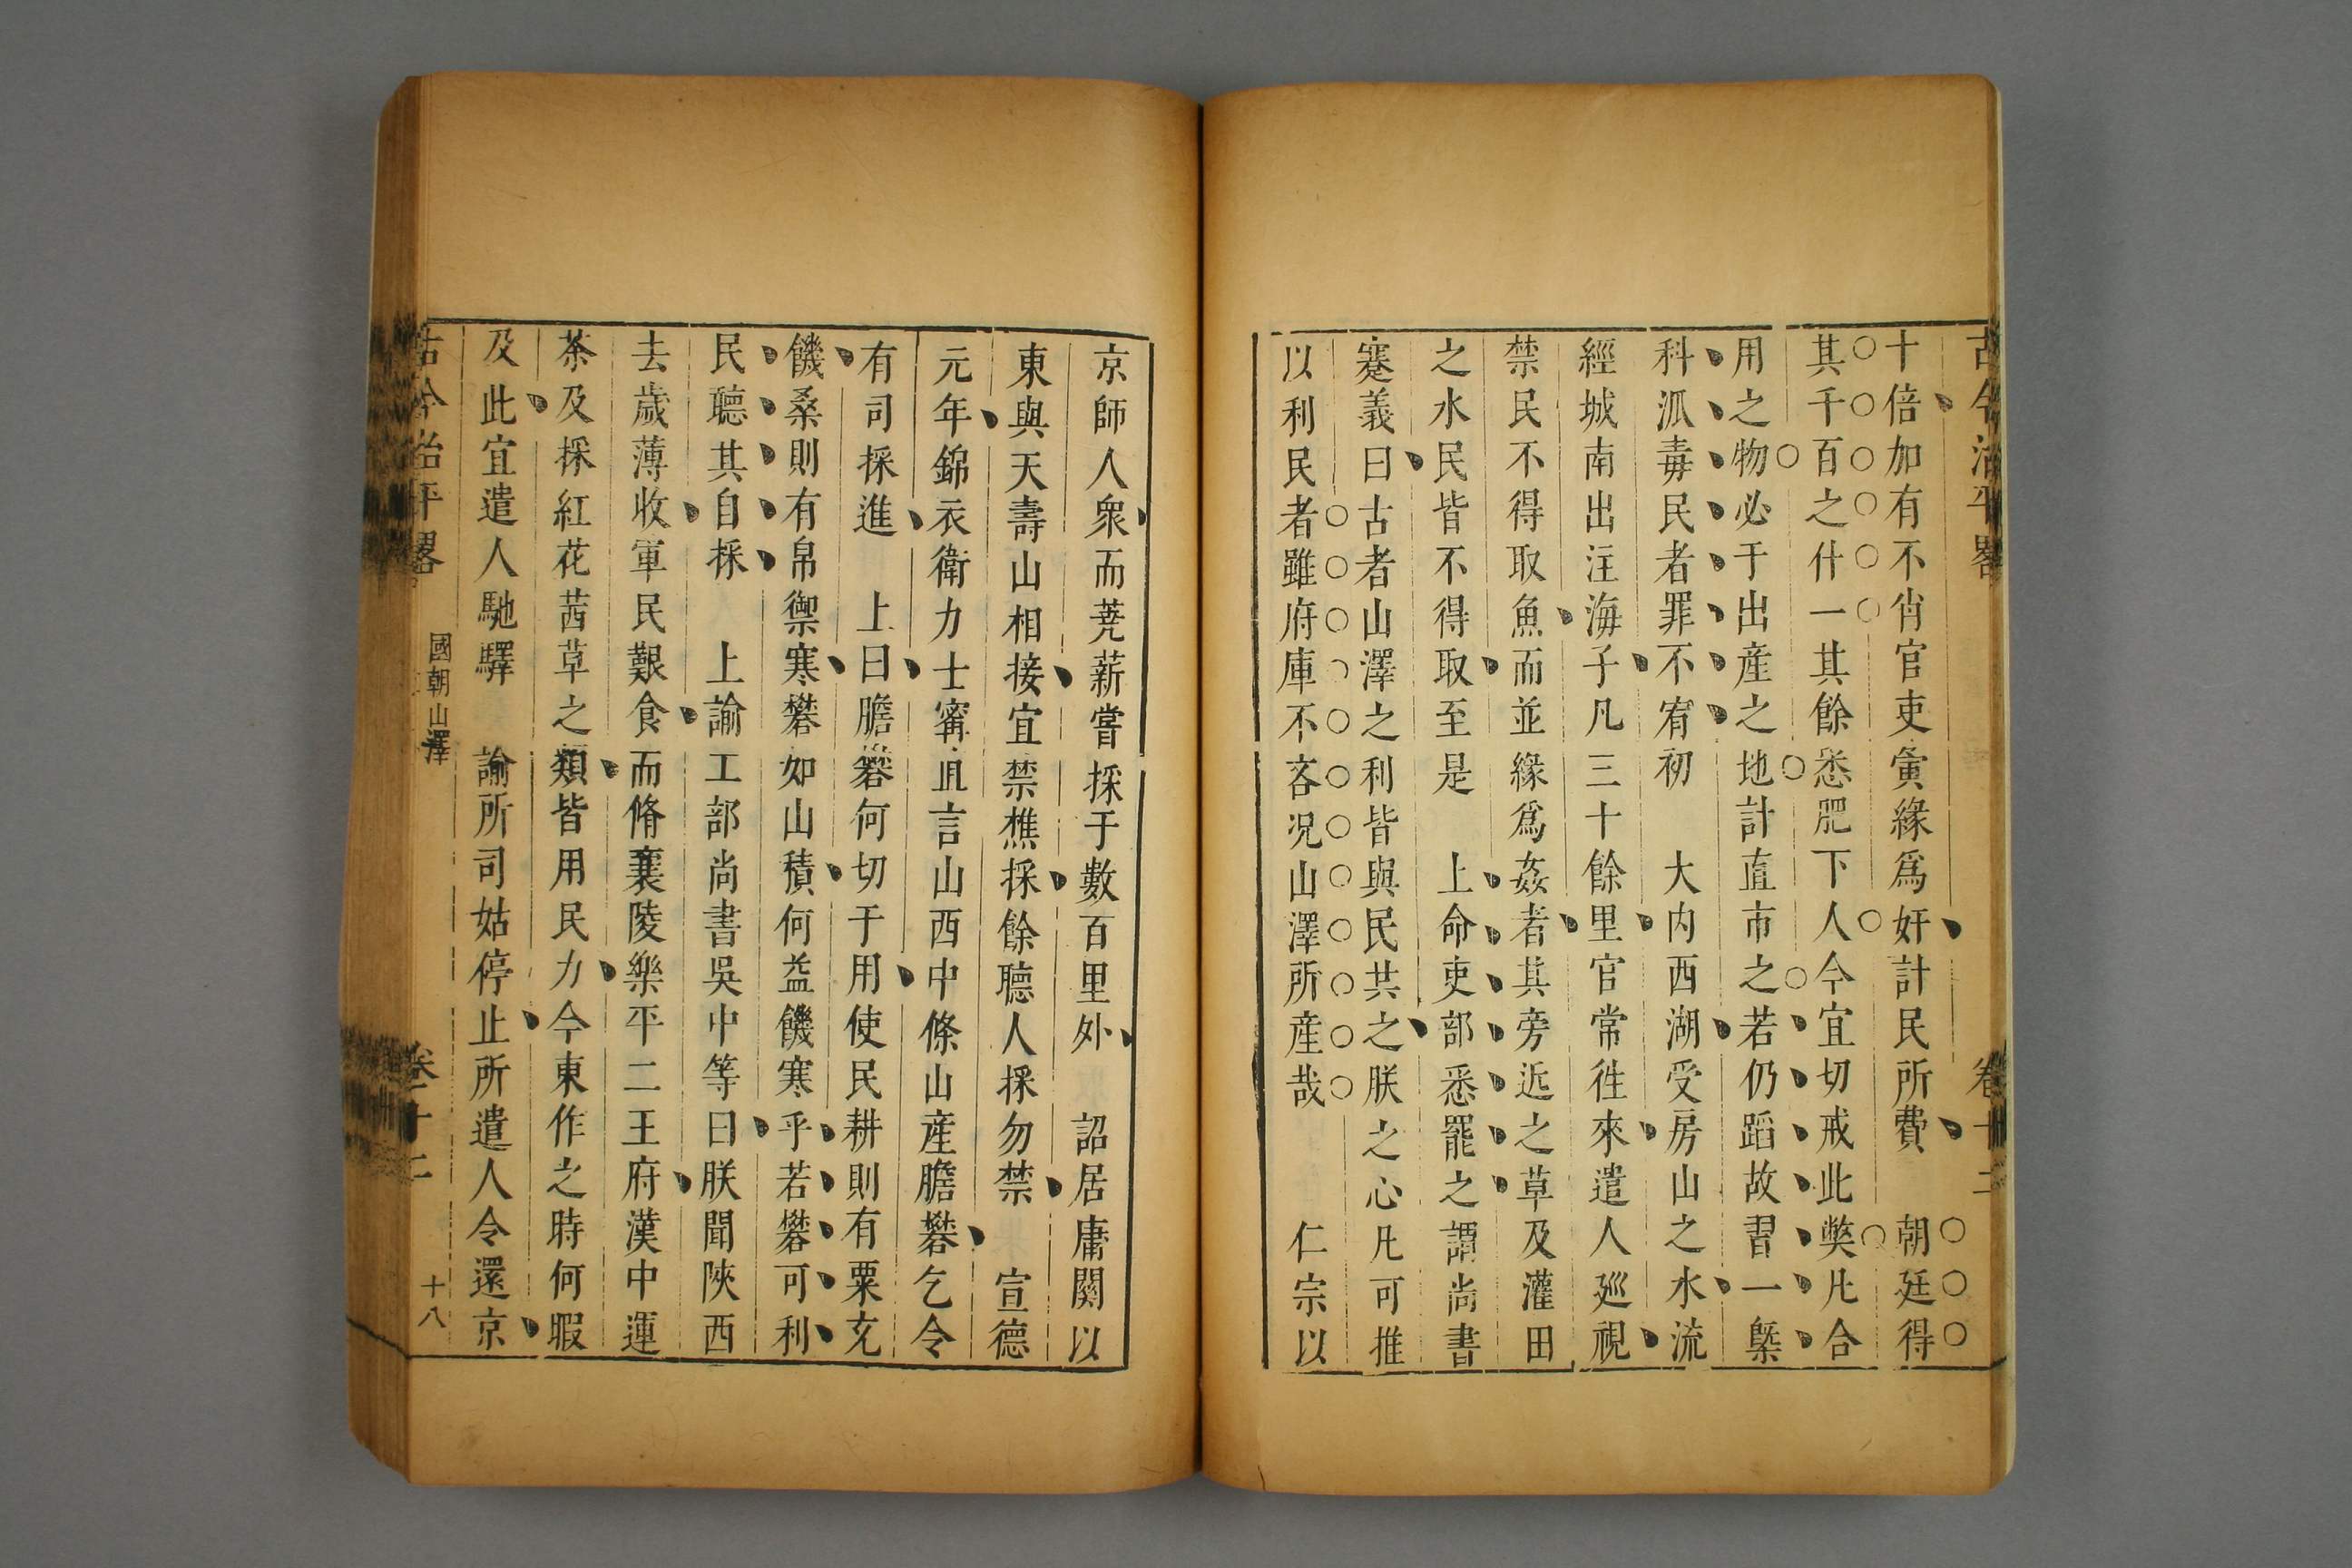 古今治平畧 卷十二
十倍加有不肖官吏夤緣爲奸計民所費 朝廷得
其千百之什一其餘悉肥下人今宜切戒此獘凡合
用之物必于出產之地計直市之若仍蹈故習一槩
科派毒民者罪不宥初 大内西湖受房山之水流
經城南出注海子凡三十餘里官常徃來遣人廵視
禁民不得取魚而並緣爲姦者其旁近之草及灌田
之水民皆不得取至是 上命吏部悉罷之謂尚書
蹇義曰古者山澤之利皆與民共之朕之心凡可推
以利民者雖府庫不吝况山澤所產哉 仁宗以
京師人衆而蒭薪嘗採于數百里外 詔居庸關以
東與天壽山相接宜禁樵採餘聽人採勿禁 宣德
元年錦衣衛力士甯且言山西中條山產膽礬乞令
有司採進 上曰膽礬何切于用使民耕則有粟充
饑桑則有帛禦寒礬如山積何益饑寒乎若礬可利
民聽其自採 上諭工部尚書吳中等曰朕聞陜西
去歲薄收軍民艱食而脩襄陵樂平二王府漢中運
茶及採紅花茜草之類皆用民力今東作之時何暇
及此宜遣人馳驛 諭所司姑停止所遣人令還京
古今治平畧 國朝山澤 卷十二 十八